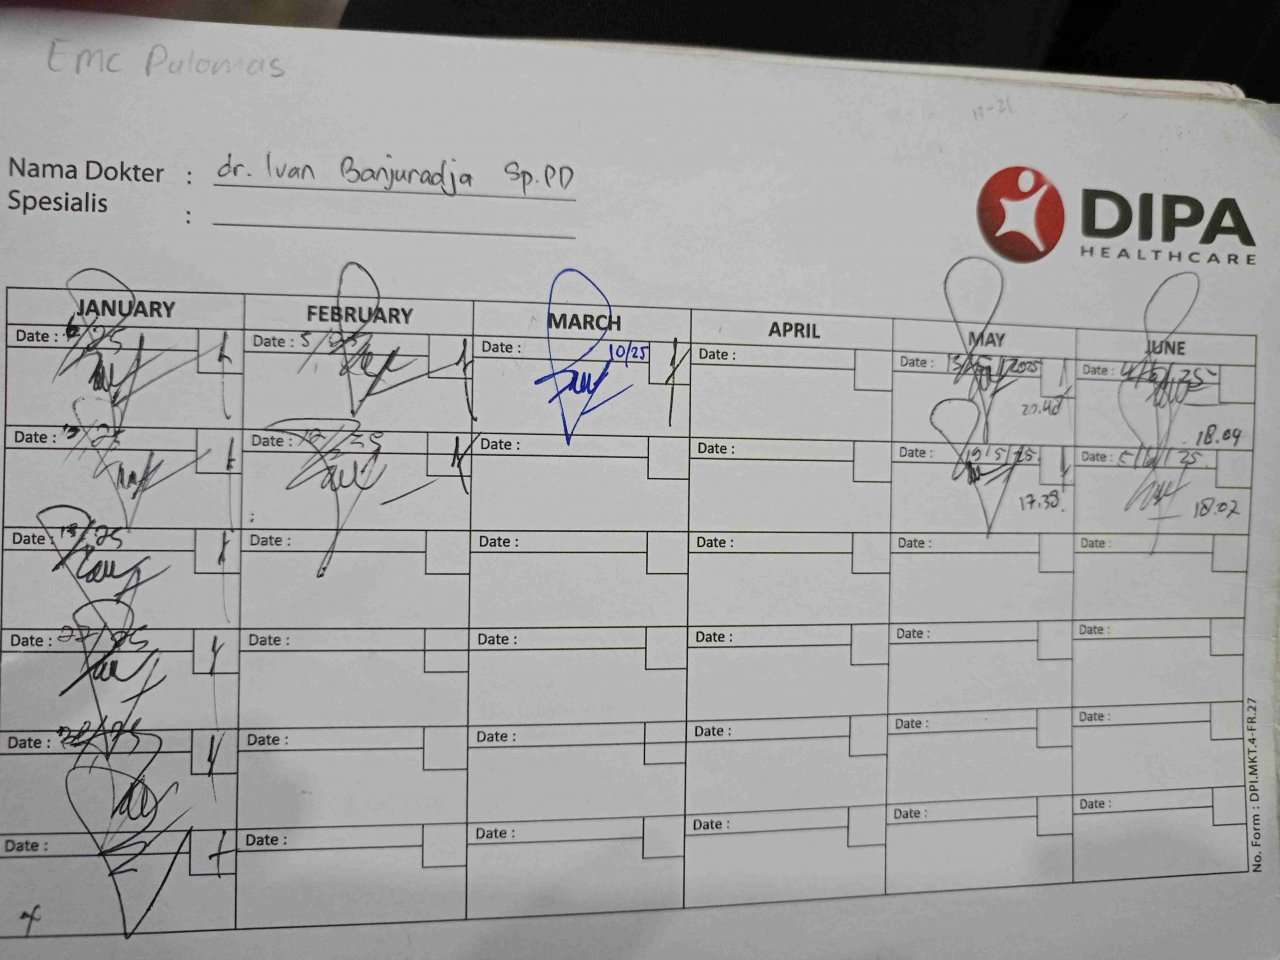 EMC Pulomas
Nama Dokter : dr. Ivan Banjuradja Sp.PD
Spesialis :
DIPA
HEALTHCARE
JANUARY FEBRUARY MARCH APRIL MAY JUNE
Date : /25 Date : 5/ Date : 10/25 Date : Date : 13/5/2025 Date : 4/6/25
20.48 18.09
Date : Date : 12/25 Date : Date : Date : 19/5/25. Date : 5/6/25.
17.38. 18.02
Date : /25 Date : Date : Date : Date : Date :
Date : /25 Date : Date : Date : Date : Date :
Date : /25 Date : Date : Date : Date : Date :
Date : Date : Date : Date : Date : Date :
No. Form : DPI.MKT.4-FR.27